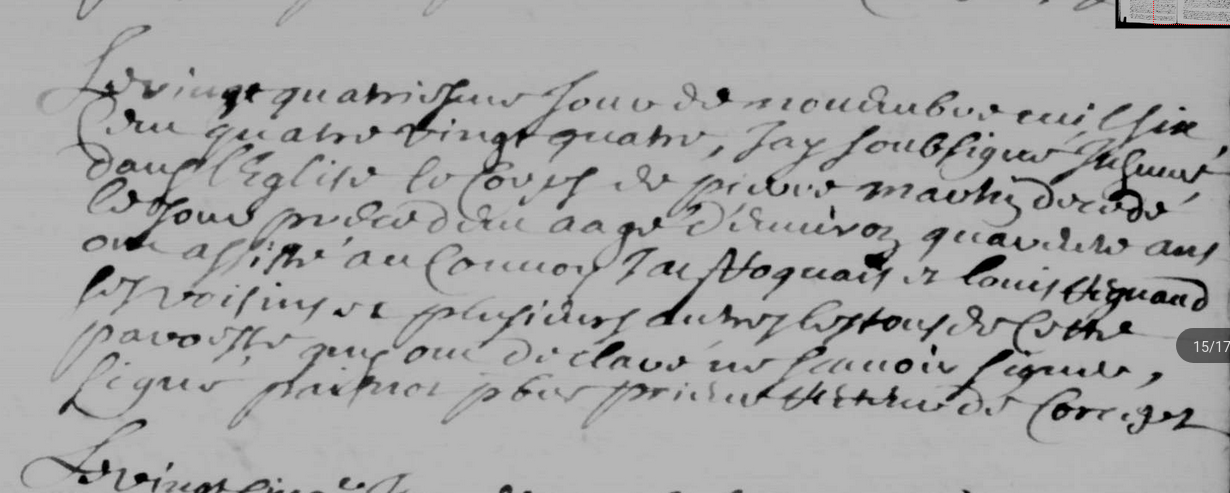 Le vingt quatriesme Jour de nouembre mil six
Cent quatre vingt quatre, Jay soubsigné Inhumé
dans l'Eglise le Corps de pierre martin decedé
le Jour precedent aagé d'enuiron quarente ans
ont assisté au Conuoy et louis
ses voisins et plusieurs autres les tous de Cette
paroisse qui ont declaré ne scauoir signer,
Signé pbre prieur de
Le vingt
15/17